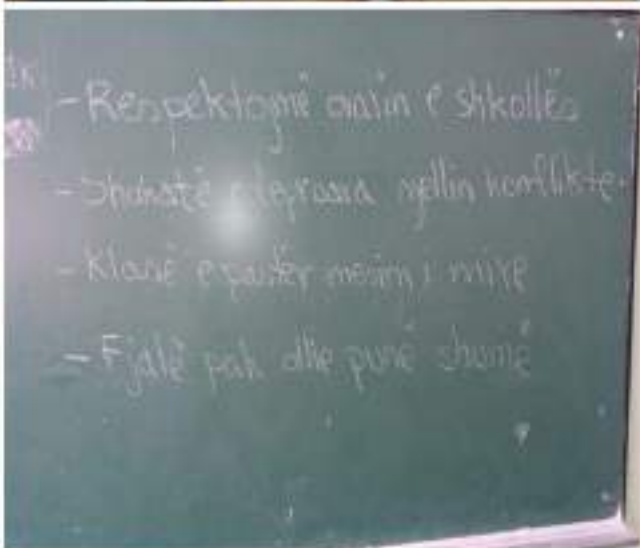 - Respektojmë orarin e shkollës
- Shakatë e tepruara sjellin konflikte.
- Klasë e pastër mësim i mirë
- Fjalë pak dhe punë shumë